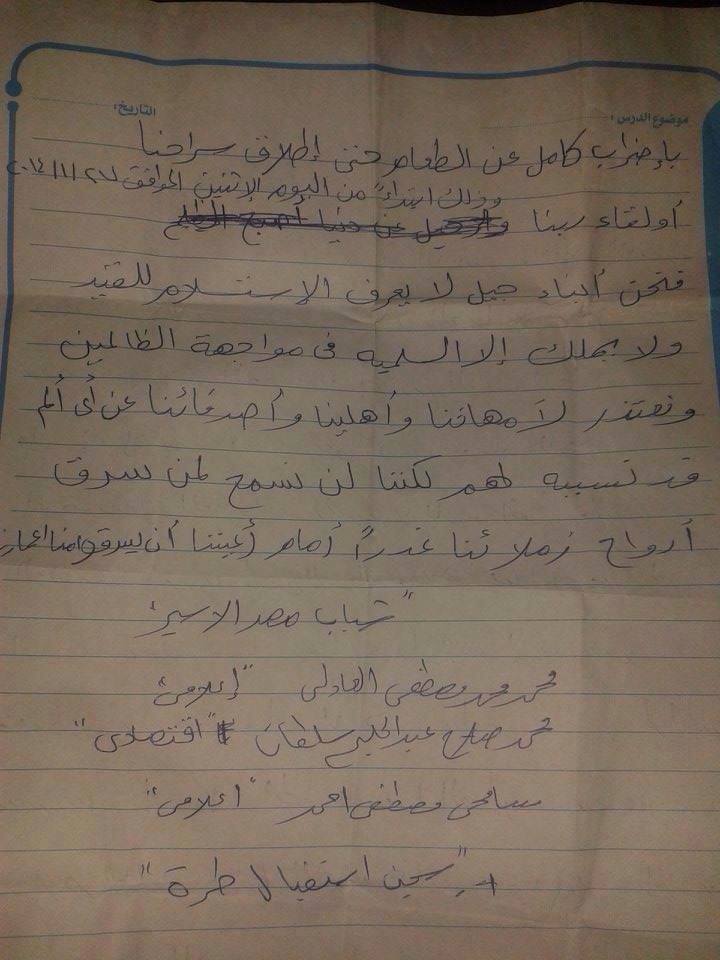 موضوع الدرس: التاريخ:
بإضراب كامل عن الطعام حتى إطلاق سراحنا
وذلك ابتداءً من اليوم الإثنين الموافق ٢٧/١/٢٠١٤
أو لقاء ربنا والرحيل عن دنيا أصبح الظلم
فنحن أبناء جيل لا يعرف الإستسلام للقيد
ولا يملك إلا السلميه فى مواجهة الظالمين
ونعتذر لأمهاتنا وأهلينا وأصدقائنا عن أى ألم
قد نسببه لهم لكننا لن نسمح لمن سرق
أرواح زملائنا غدراً أمام أعيننا أن يسرقوا منا
"شباب مصر الاسير"
محمد محمد مصطفى العادلى "إعلامى"
محمد صلاح عبدالحليم سلطان "اقتصادى"
سامحى مصطفى احمد "اعلامى"
"سجن استقبال طرة"